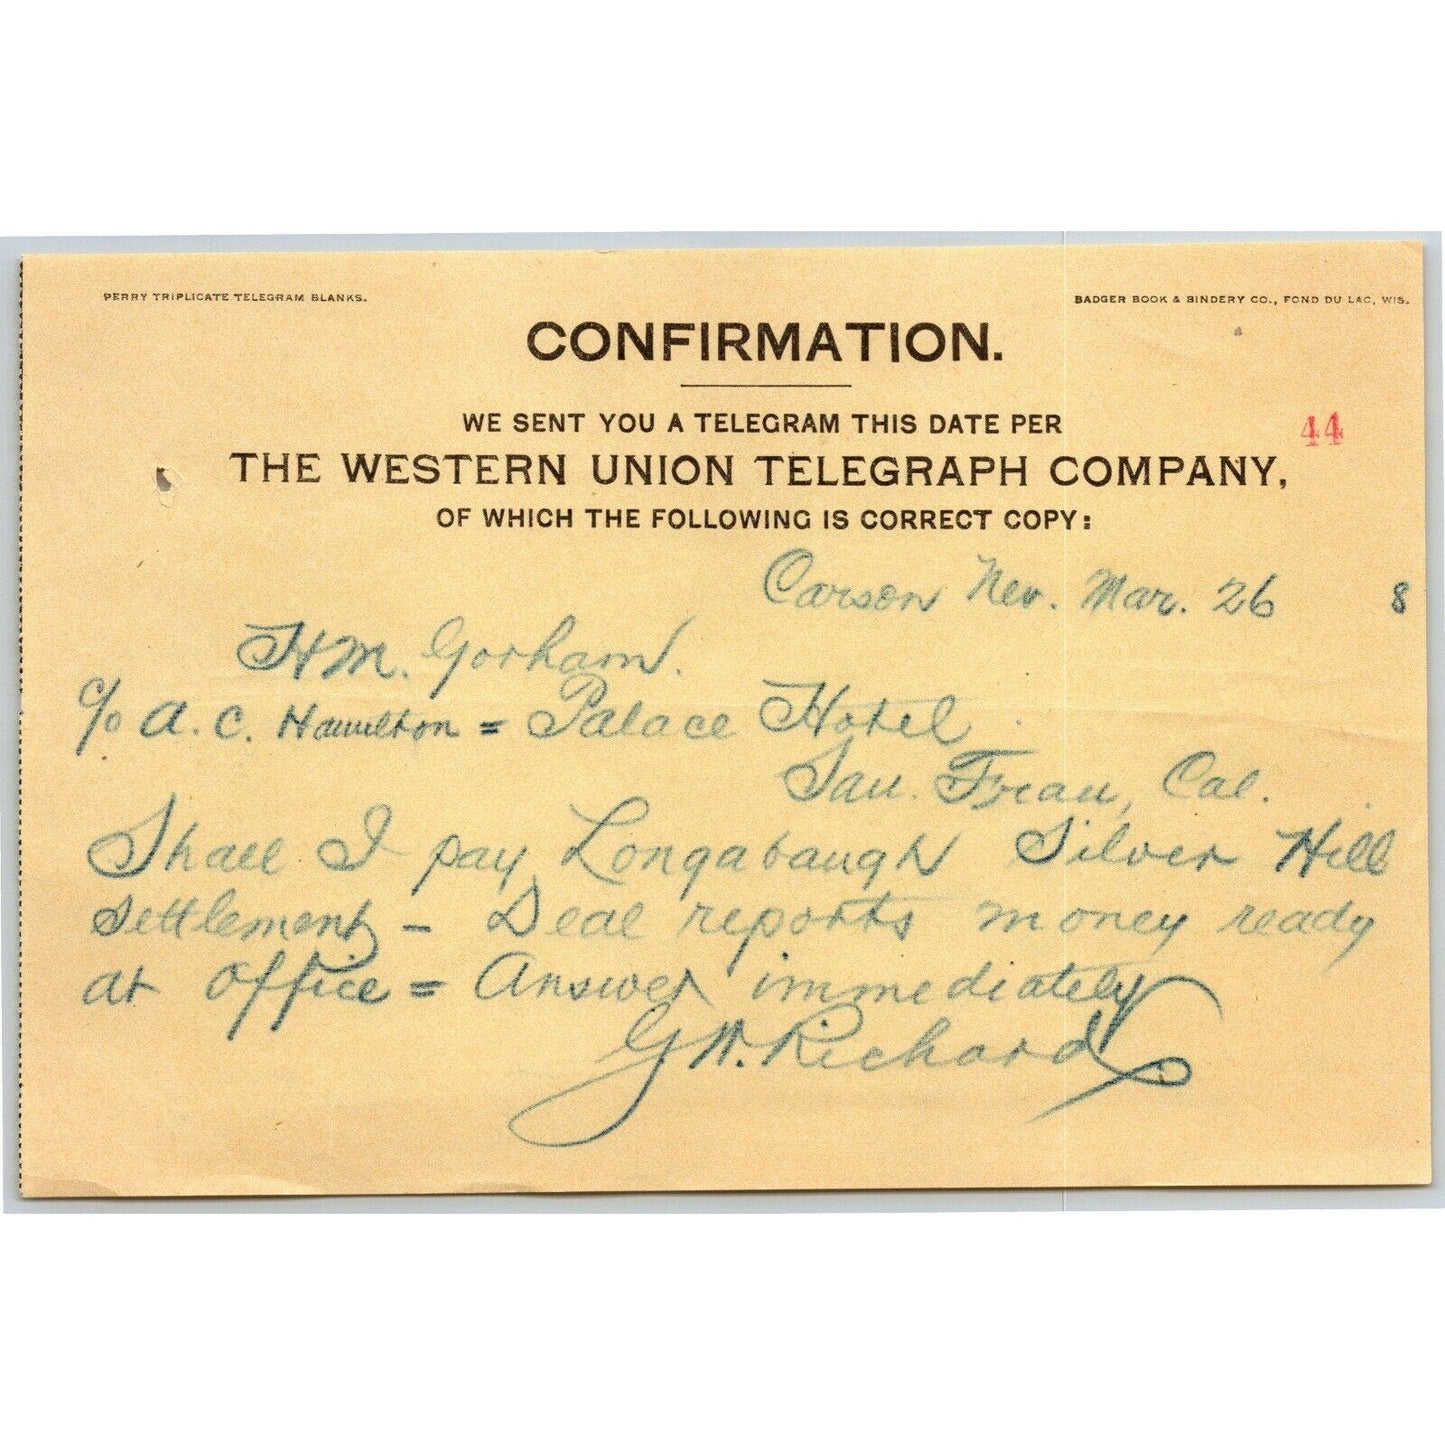 PERRY TRIPLICATE TELEGRAM BLANKS.
BADGER BOOK & BINDERY CO., FOND DU LAC, WIS.
CONFIRMATION.
WE SENT YOU A TELEGRAM THIS DATE PER
44
THE WESTERN UNION TELEGRAPH COMPANY,
OF WHICH THE FOLLOWING IS CORRECT COPY:
Carson Nev. Mar. 26 8
H M. Gorham.
c/o A. C. Hamilton = Palace Hotel
San. Fran, Cal.
Shall I pay Longabaugh Silver Hill
settlement - Deal reports money ready
at office = Answer immediately
G. W. Richard